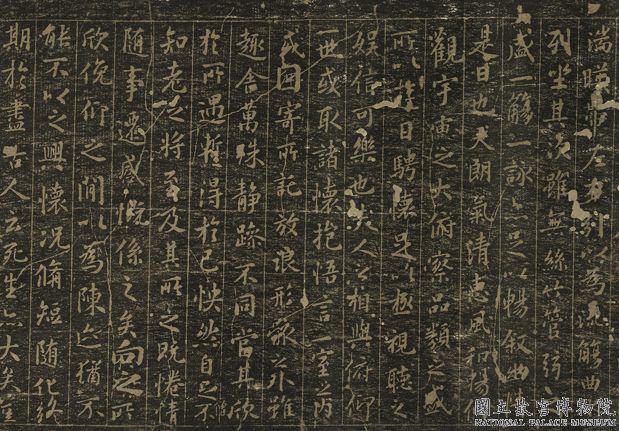 湍暎帶左右引以為流觴曲
列坐其次雖無絲竹管弦之
盛一觴一詠亦足以暢敘幽情
是日也天朗氣清惠風和暢
觀宇宙之大俯察品類之盛
所以遊目騁懷足以極視聽之
娛信可樂也夫人之相與俯仰
一世或取諸懷抱悟言一室之內
或因寄所託放浪形骸之外雖
趣舍萬殊靜躁不同當其欣
於所遇暫得於己怏然自足不
知老之將至及其所之既惓情
隨事遷感慨係之矣向之所
欣俛仰之間以為陳迹猶不
能不以之興懷況脩短隨化終
期於盡古人云死生亦大矣豈
國立故宮博物院
NATIONAL PALACE MUSEUM